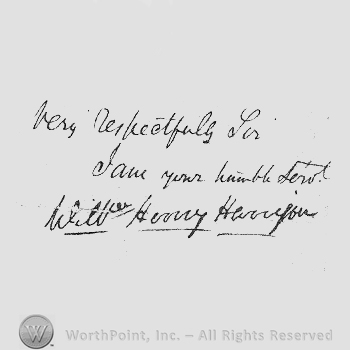 Very Respectfully Sir
I am your humble Servt.
Willm Henry Harrison
W
WorthPoint, Inc. – All Rights Reserved